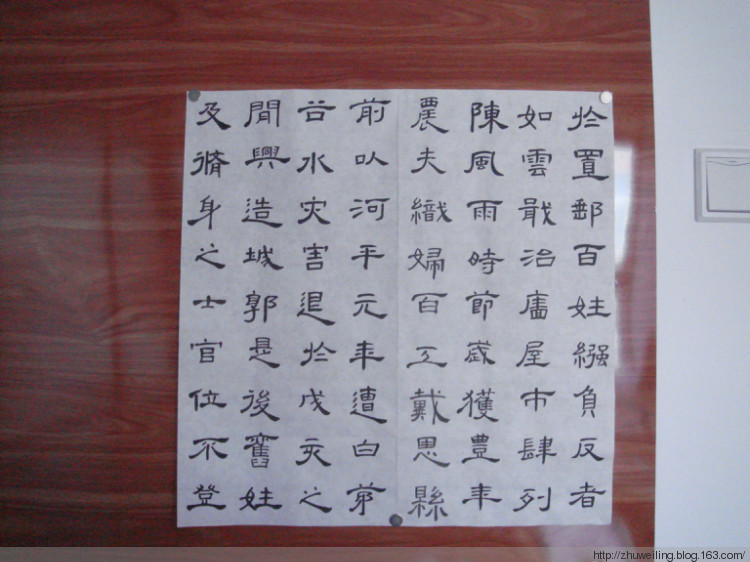 於置郵百姓繈負反者
如雲戢治廧屋市肆列
陳風雨時節歲獲豐年
農夫織婦百工戴恩縣
前以河平元年遭白茅
谷水灾害退於戌亥之
間興造城郭是後舊姓
及脩身之士官位不登
http://zhuweiling.blog.163.com/